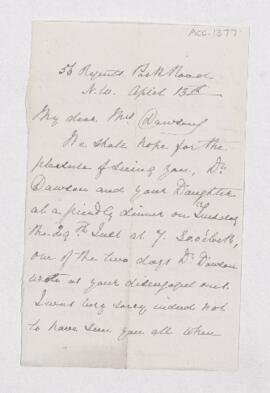 ACC. 1377
56 Regents Park Road
N.W. April 13th
My dear Mrs Dawson
We shall hope for the
pleasure of seeing you, Dr
Dawson and your Daughter
at a friendly dinner on Tuesday
the 29th Inst at 7. 30 o'clock,
one of the two days Dr Dawson
wrote as your disengaged ones.
I was very sorry indeed not
to have seen you all when